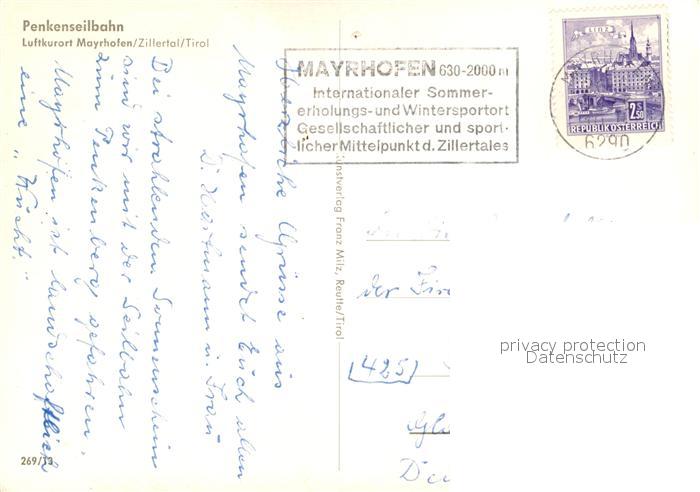 Penkenseilbahn
Luftkurort Mayrhofen/Zillertal/Tirol
MAYRHOFEN 630-2000 m
Internationaler Sommer-
erholungs- und Wintersportort
Gesellschaftlicher und sport-
licher Mittelpunkt d. Zillertales
LINZ
2.50
REPUBLIK ÖSTERREICH
6290
Herzliche Grüsse aus
Mayrhofen sendet Euch allen
D. Hartmann u. Frau
Bei strahlendem Sonnenschein
sind wir mit der Seilbahn
zum Penkenberg gefahren.
Mayrhofen ist landschaftlich
eine „Wucht."
Kunstverlag Franz Milz, Reutte/Tirol
der
(425)
privacy protection
Datenschutz
269/13